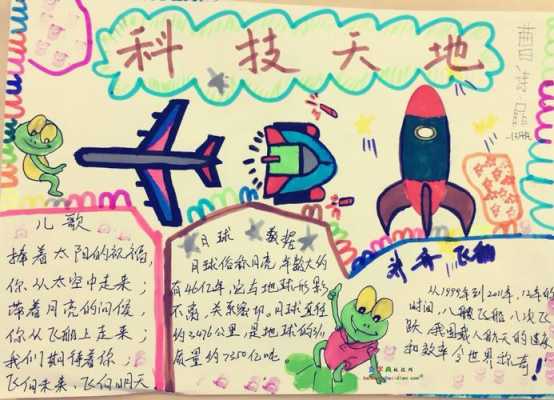 科技天地
儿歌
捧着太阳的祝福，
你从太空中走来；
带着月亮的问候，
你从飞船上走来；
我们期待着你；
飞向未来、飞向明天
月球 数据
月球俗称月亮，年数大约
有46亿年，它与地球形影
不离，关系密切，月球直径
约3476公里，是地球的3/11
质量约7350亿吨
神舟飞船
从1999年到2011年，12年的
时间，八艘飞船，八次飞
跃，我国载人航天的速度
和效率令世界称奇！